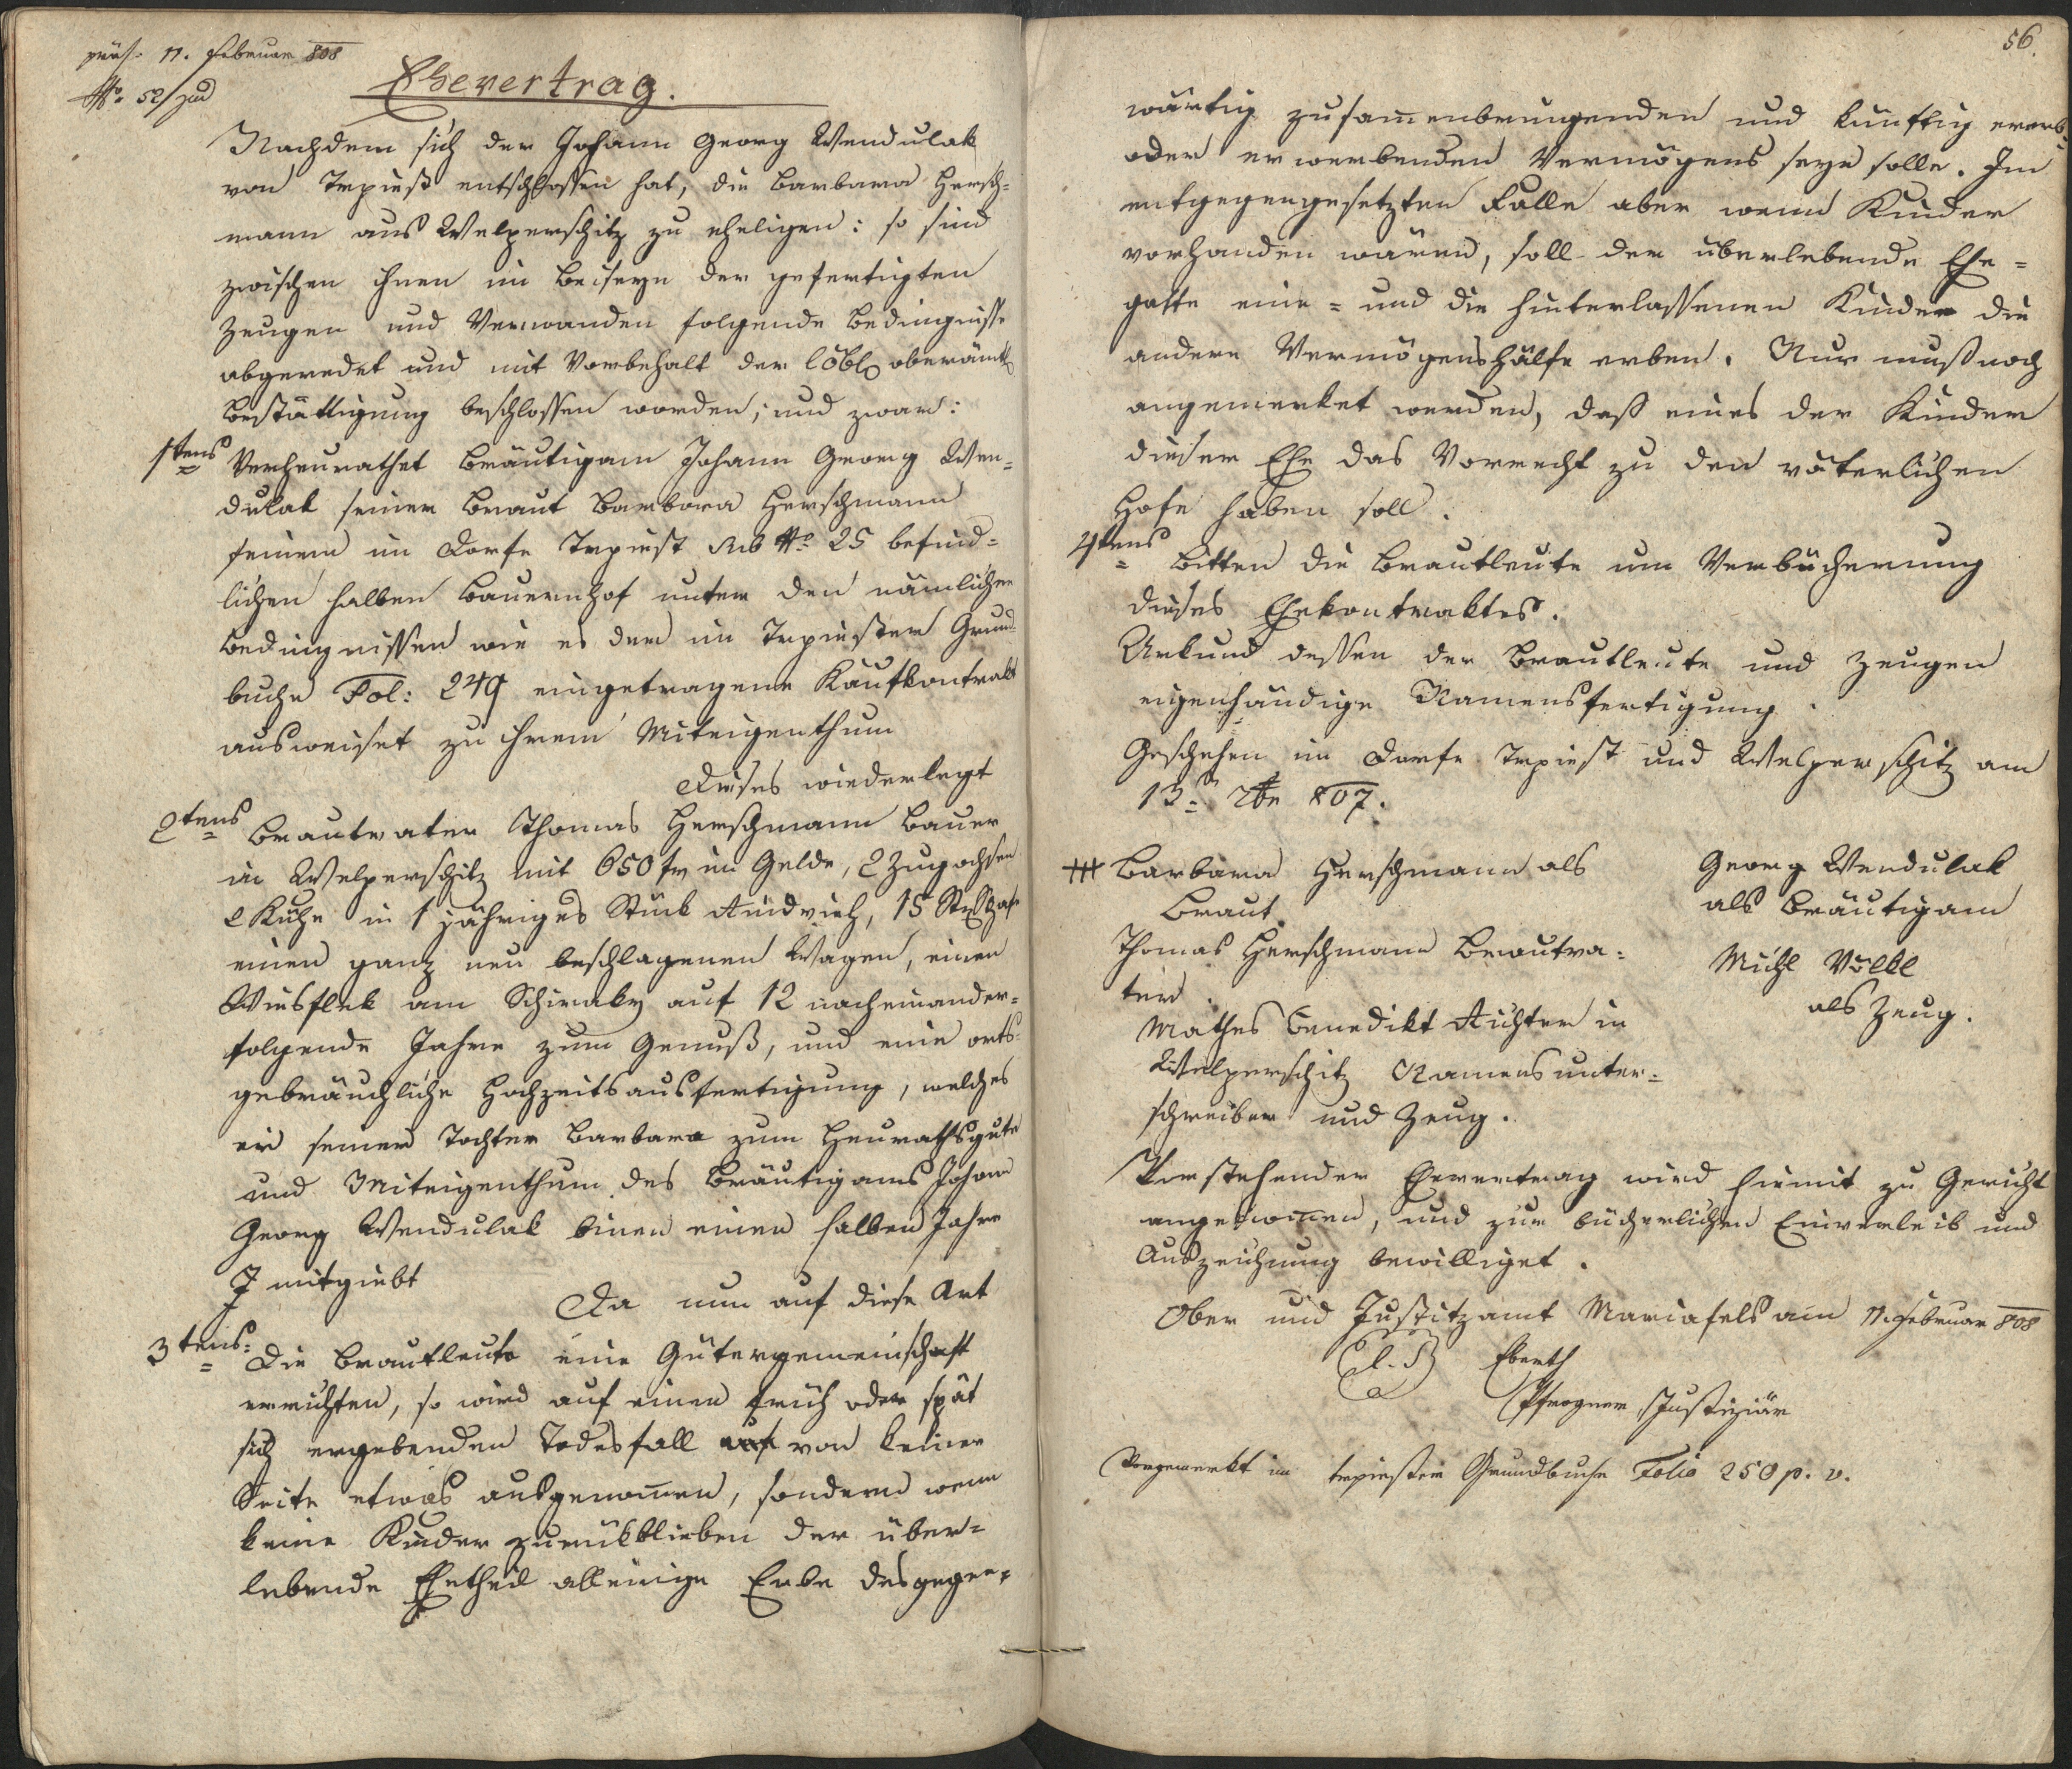 präs. 11. Februar 808
No. 52/jud
Ehevertrag.
Nachdem sich der Johann Georg Wendulak
von Trpiest entschlossen hat, die Barbara Hersch=
mann aus Welperschitz zu eheligen: so sind
zwischen ihnen im Beiseyn der gefertigten
Zeugen und Verwanden folgende Bedingnisse
abgeredet und mit Vorbehalt der löbl. oberämtl.
Bestättigung beschlossen worden; und zwar:
1tens Verheurathet Bräutigam Johann Georg Wen=
dulak seiner Braut Barbora Herschmann
seinem im Dorfe Trpiest sub No. 25 befind=
lichen halben Bauernhof unter den nämlichen
Bedingnissen wie es der im Trpiester Grund
buche Fol: 249 eingetragene Kaufkontrakt
ausweiset zu ihrem Miteigenthum
Dieses wiederlegt
2tens Brautvater Thomas Herschmann Bauer
in Welperschitz mit 650 fr im Gelde, 2 Zugochsen
2 Kühe in 1 jähriges Stück Rindvieh, 15 St. Schafe
einen ganz neu beschlagenen Wagen, einen
Wiesflek am Schiraky auf 12 nacheinander=
folgende Jahre zum Genuß, und eine orts=
gebräuchliche Hochzeitsausfertigung, welches
er seiner Tochter Barbara zum Heurathsgute
und Miteigenthum des Bräutigams Johann
Georg Wendulak binen einen halben Jahre
mitgiebt
Da nun auf diese Art
3tens: Die Brautleute eine Gütergemeinschaft
errichten, so wird auf einen früh oder spät
sich ergebenden Todesfall von keiner
Seite etwas ausgenom̄en, sondern wenn
keine Kinder zurükblieben der über=
lebende Ehetheil alleinige Erbe des gegen=
56.
wärtig zusam̄enbringenden und künftig ererb=
oder erwerbenden Vermögens seyn solle. Im
entgegengesetzten Falle aber wenn Kinder
vorhanden wären, soll der überlebende Ehe=
gatte eine = und die hinterlassenen Kinder die
andere Vermögenshälfe erben. Nur muß noch
angemerket werden, daß eines der Kinder
dieser Ehe das Vorrecht zu den väterlichen
Hofe haben soll.
4tens Bitten die Brautleute um Verbücherung
dieses Ehekontraktes.
Urkund dessen der Brautleute und Zeugen
eigenhändige Namensfertigung.
Geschehen im Dorfe Trpiest und Welperschitz am
13. 807.
+++ Barbara Herschmann als
Braut.
Thomas Herschmann Brautva=
ter.
Mathes Benedikt Richter in
Welperschitz Namensunter=
schreiber und Zeug.
Georg Wendulak
als Bräutigam
Michl Völkl
als Zeug.
Vorstehender Ehevertrag wird hiemit zu Gericht
angenom̄en, und zur bücherlichen Einverleib und
Auszeichnung bewilliget.
Ober und Justitzamt Mariafels am 11. Februar 808
(L. S.) Eberth
Pfrogner, Justiziär
Vorgemerkt im trpiester Grundbuche Folio 250 p. v.